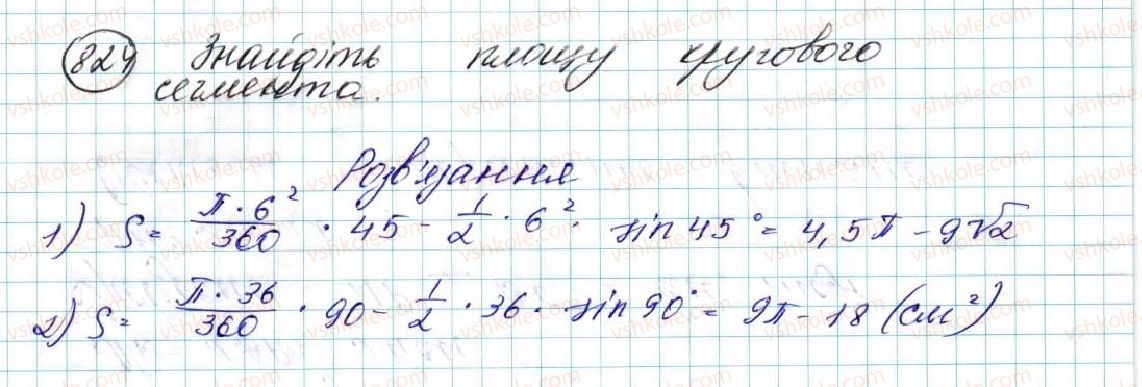 824 Знайдіть площу кругового
сегмента.
Розв'язання
1) S = π · 6² / 360 · 45 - 1/2 · 6² · sin 45° = 4,5π - 9√2
2) S = π · 36 / 360 · 90 - 1/2 · 36 · sin 90° = 9π - 18 (см²)